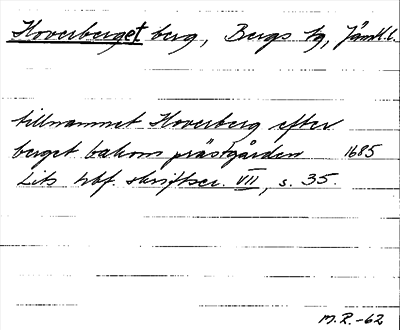 Hoverberget berg, Bergs tg, Jämtl.l.
tillnamnet Hoverberg efter
berget bakom prästgården 1685
Lits hbf. skriftser. VII, s. 35.
M.R.-62